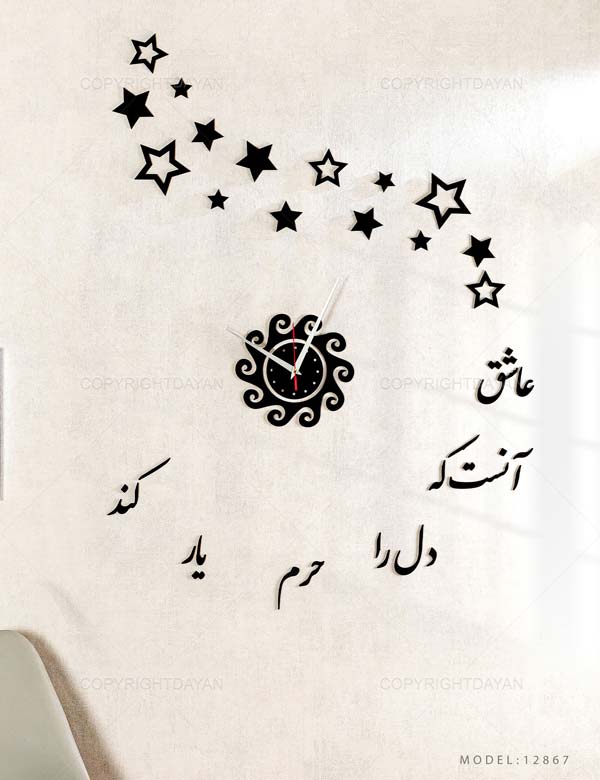 COPYRIGHTDAYAN COPYRIGHTDAYAN
COPYRIGHTDAYAN COPYRIGHTDAYAN
عاشق
آنست که
دل را
حرم
یار
کند
COPYRIGHTDAYAN COPYRIGHTDAYAN
MODEL:12867